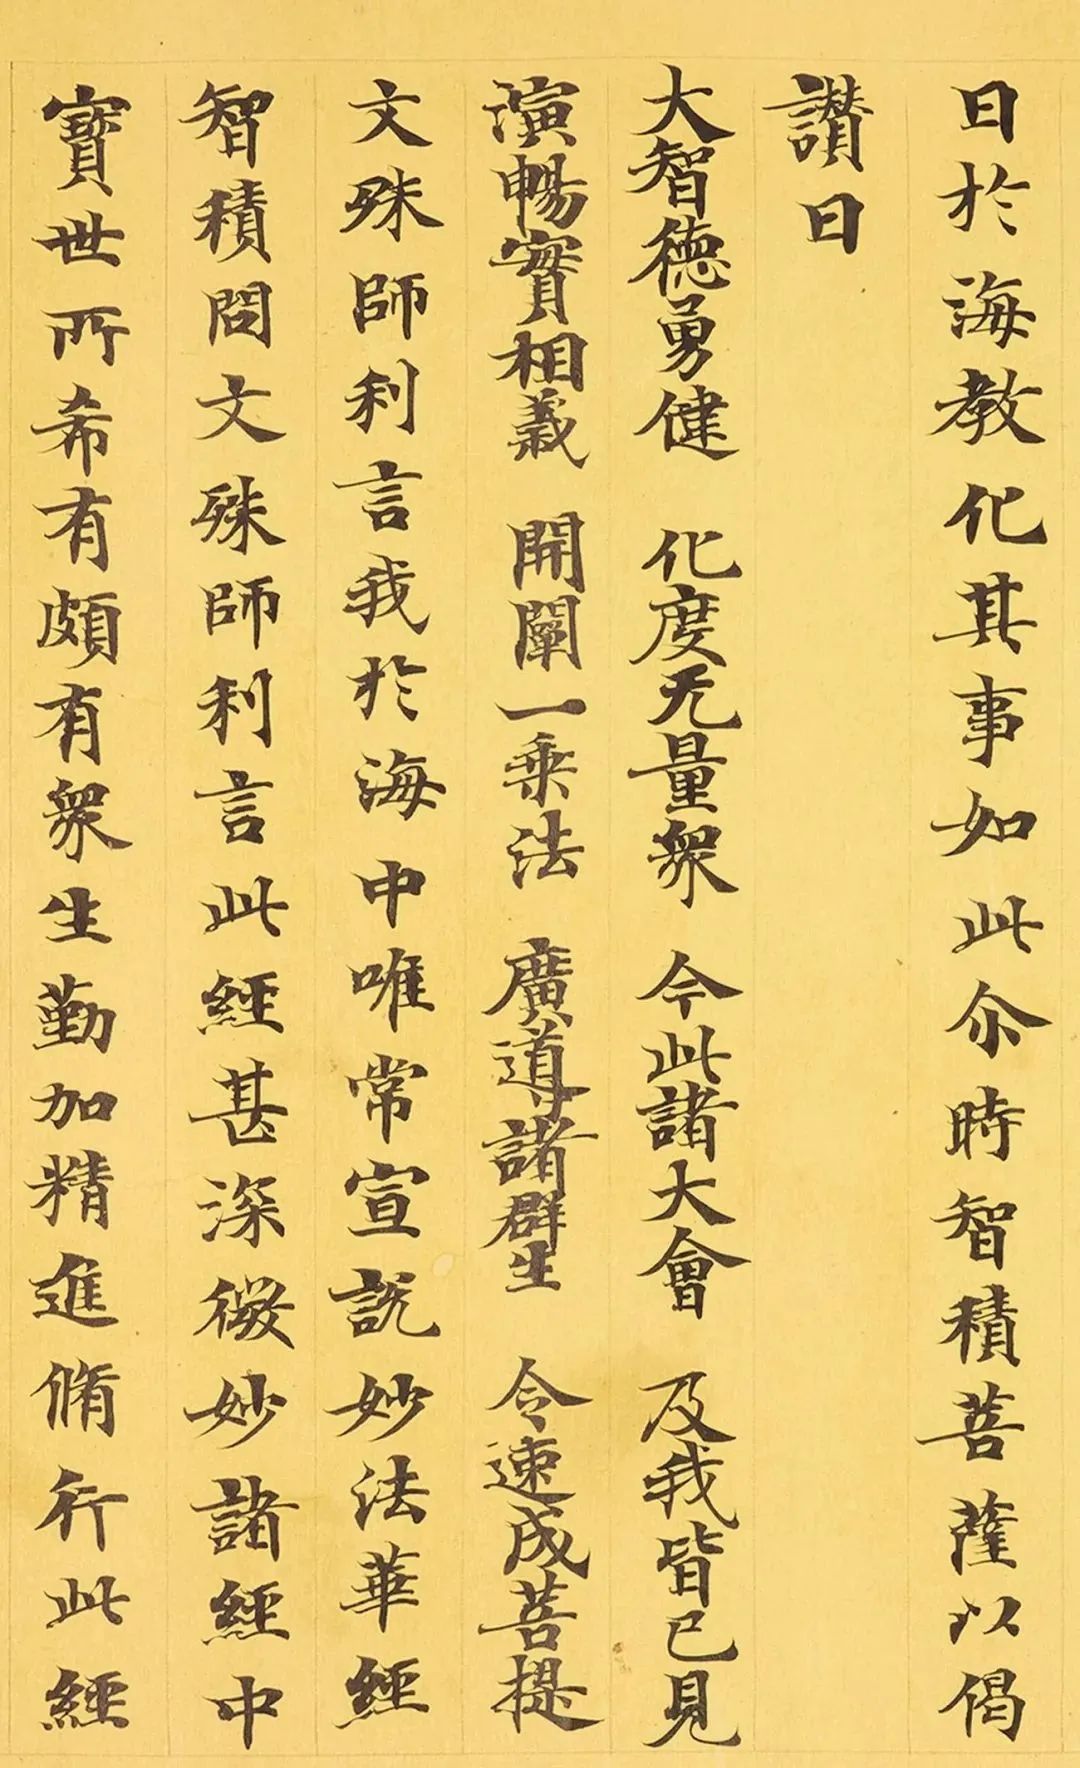 曰於海教化其事如此尒時智積菩薩以偈
讃曰
大智德勇健　化度无量眾　今此諸大會　及我皆已見
演暢實相義　開闡一乘法　廣導諸群生　令速成菩提
文殊師利言我於海中唯常宣說妙法華經
智積問文殊師利言此經甚深微妙諸經中
寶世所希有頗有眾生勤加精進脩行此經